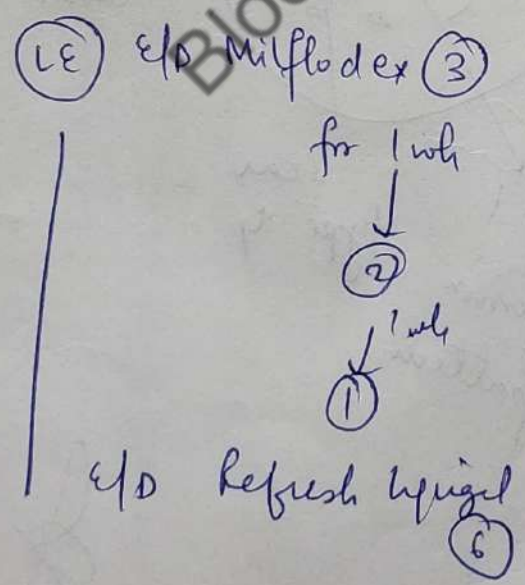 LE E/D Milflodex 3
for 1 wk
2
1 wk
1
E/D Refresh Liquigel
6